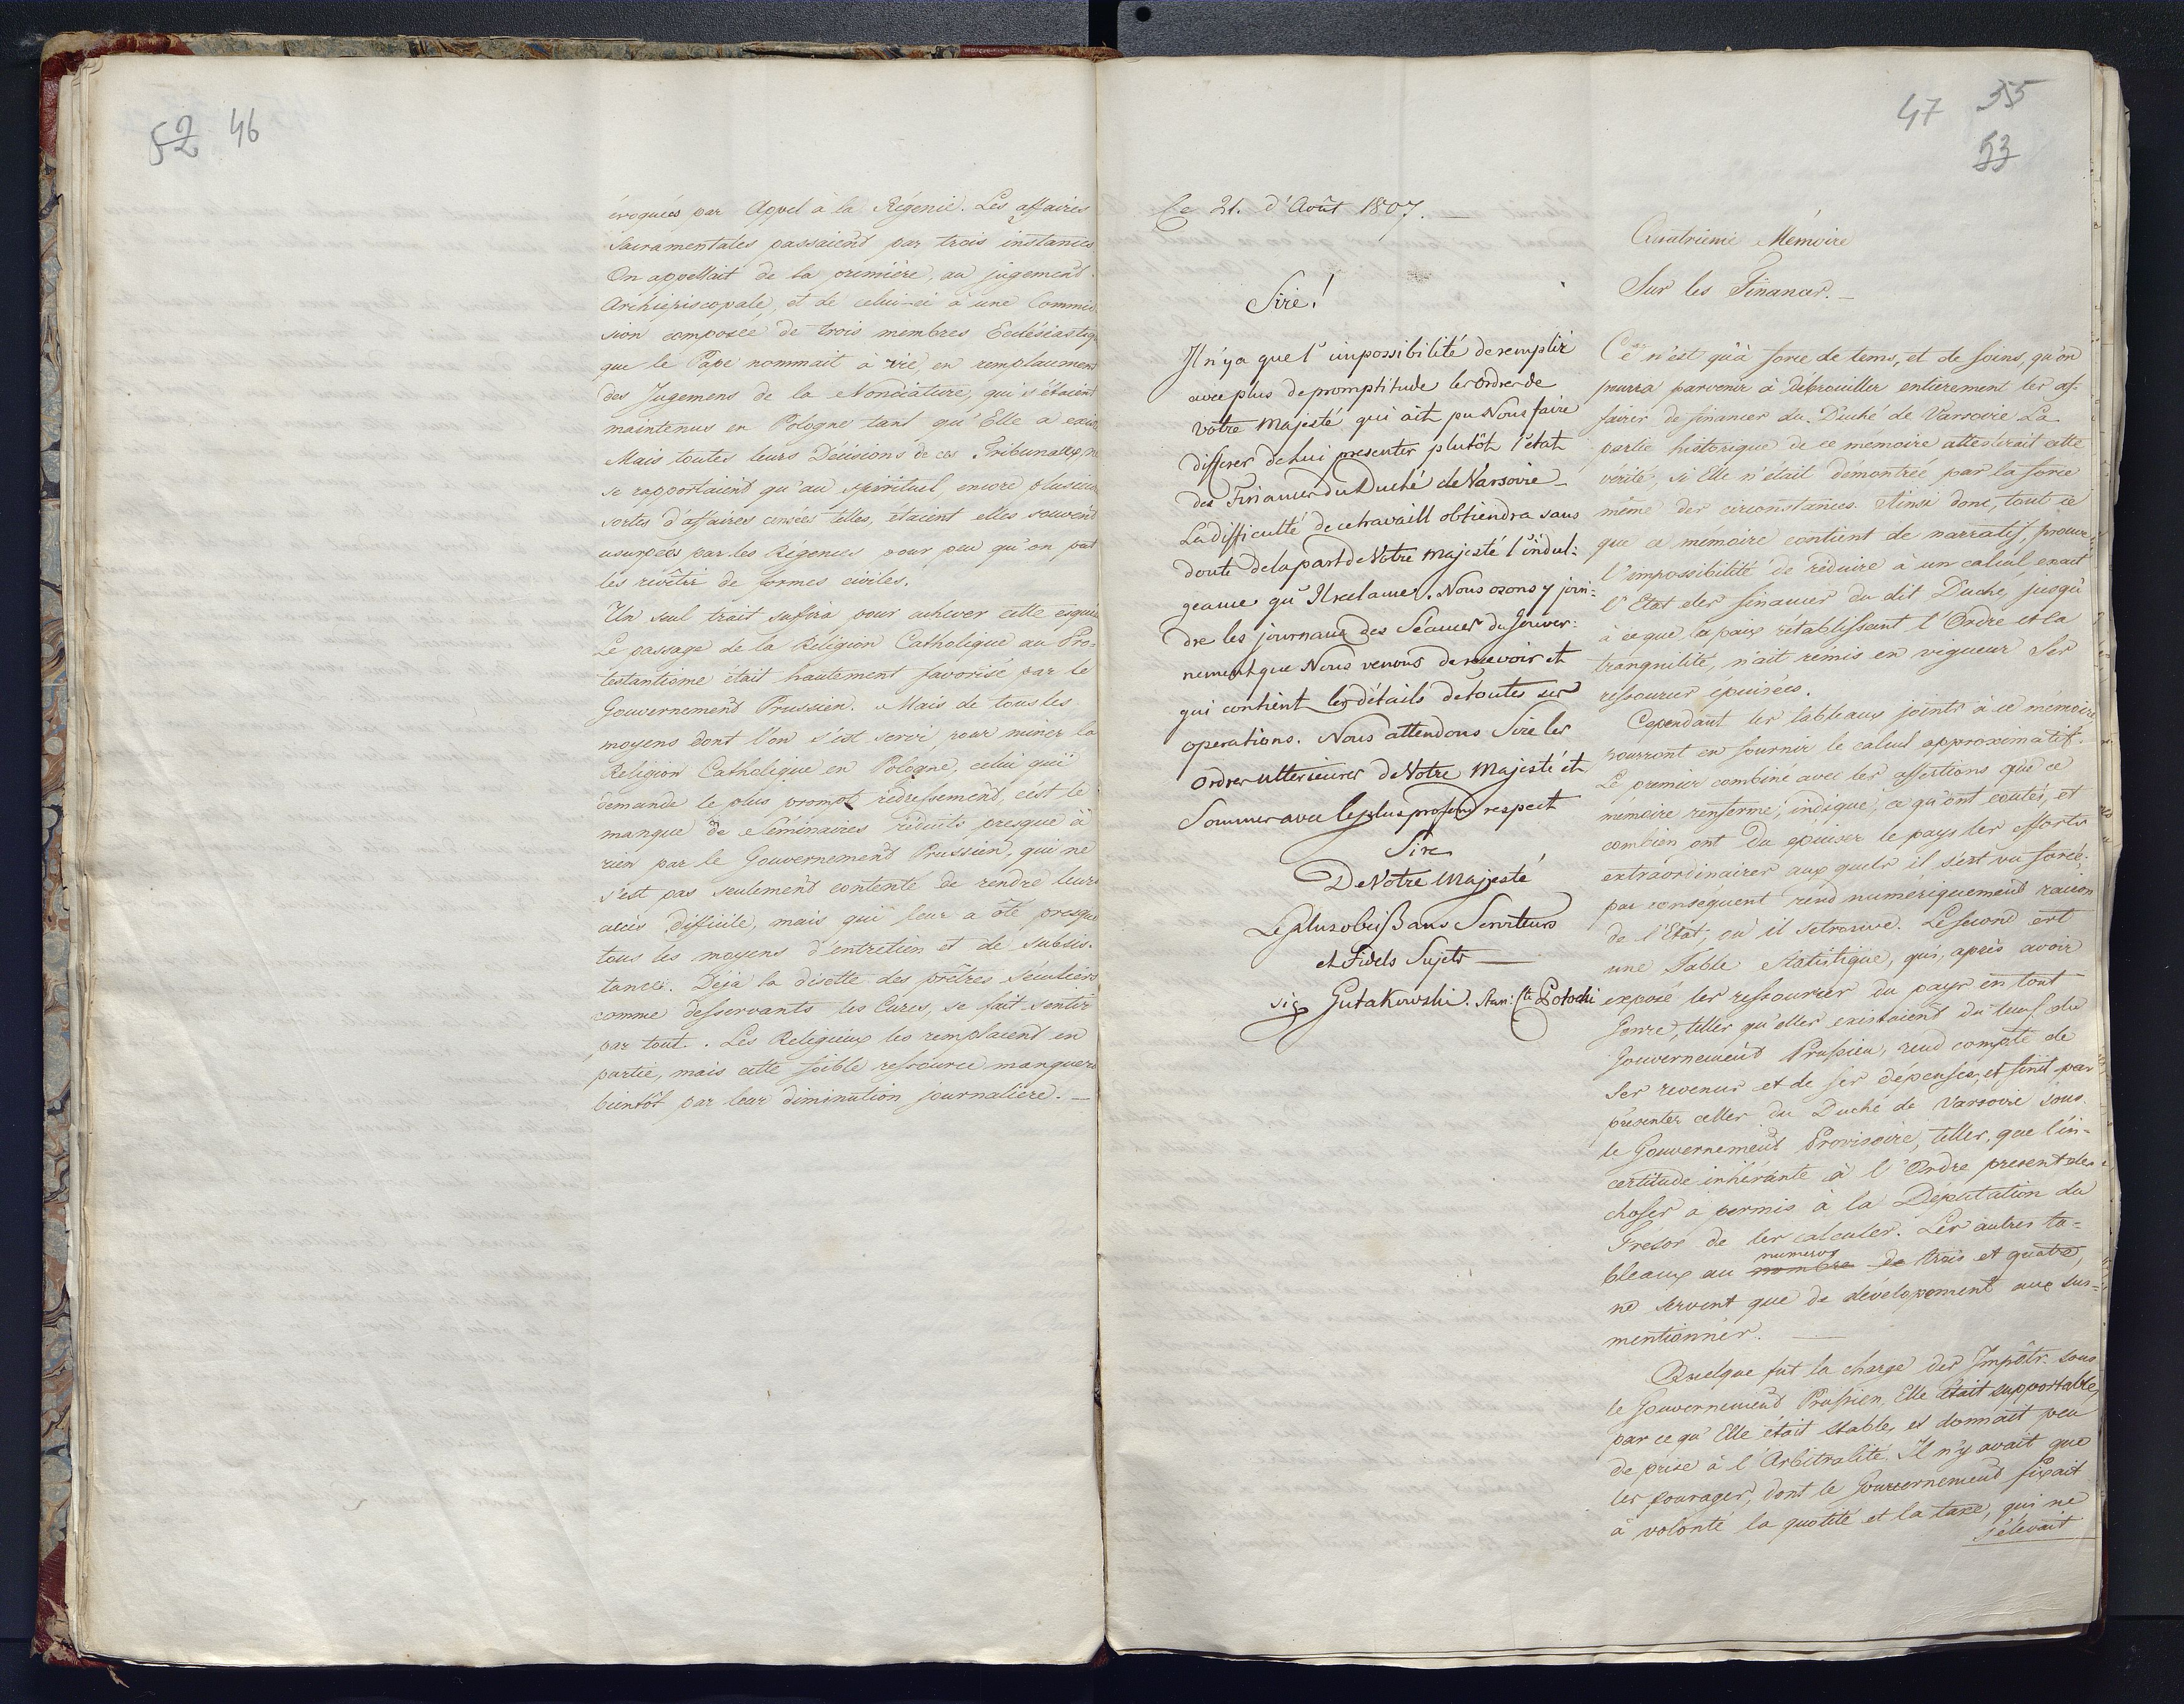 52 46
évoquées par Appel à la Régence. Les affaires
Sacramentales passaient par trois instances
On appellait de la première, au jugement
Archiépiscopale, et de celui-ci à une Commis
sion composée de trois membres Ecclésiastiq
que le Pape nommait à vie, en remplacement
des Jugemens de la Nonciature, qui s'étaient
maintenus en Pologne tant qu'Elle a exis
Mais toutes leurs Décisions de ces Tribunaux, n
se rapportaient qu'au spirituel, encore plusieu
sortes d'affaires censées telles, étaient elles souvent
usurpées par les Régences pour peu qu'on put
les revêtir de formes civiles.
Un seul trait suffira pour achever cette esquis
Le passage de la Religion Catholique au Pro-
testantisme était hautement favorisé par le
Gouvernement Prussien. Mais de tous les
moyens dont l'on s'est servi pour miner la
Religion Catholique en Pologne, celui qui
demande le plus prompt redressement, c'est le
manque de Séminaires réduits presque à
rien par le Gouvernement Prussien, qui ne
s'est pas seulement contenté de rendre leurs
accès difficile, mais qui leur a ôté presque
tous les moyens d'entretien et de subsis-
tance. Déja la disette des prêtres Séculiers
comme desservants les Cures, se fait sentir
par tout. Les Religieux les remplacent en
partie, mais cette foible ressource manquera
bientôt par leur diminution journalière. —
47 35
53
Ce 21. d'Août 1807. —
Sire!
Il n'ya que l'impossibilité de remplir
avec plus de promptitude les Ordres de
Votre Majesté qui ait pu Nous faire
differer de lui presenter plutôt l'état
des Finances du Duché de Varsovie —
La difficulté de ce travaill obtiendra sans
doute de la part de Votre Majesté l'indul:
geance qu'Il reclame. Nous osons y join:
dre les journaux des Séances du Gouver:
nement que Nous venons de recevoir et
qui contient les détails de toutes ses
operations. Nous attendons Sire les
Ordres Ulterieures de Votre Majesté et
Sommes avec le plus profond respect
Sire
De Votre Majesté
Le plus obeißans Serviteurs
et Fidels Sujets —
sig Gutakowski. Stan: Cte Potocki
Quatrième Mémoire
Sur les Finances. —
Ce n'est qu'à force de tems, et de soins, qu'on
pourra parvenir à débrouiller entierement les af-
faires de finances du Duché de Varsovie La
partie historique de ce mémoire attesterait cette
vérité, si Elle n'était demontrée par la force
même des circonstances. Ainsi donc, tout ce
que ce memoire contient de narratif, prouve
l'impossibilité de réduire à un calcul exact
l'Etat des finances du dit Duché, jusqu'
à ce que la paix rétablissant l'Ordre et la
tranquilité, n'ait remis en vigueur Ses
ressources épuisées.
Cependant les tableaux joints à ce memoire
pourront en fournir le calcul approximatif.
Le premier combiné avec les assertions que ce
mémoire renferme, indique ce qu'ont coutés, et
combien ont du epuiser le pays les efforts
extraordinaires aux quels il s'est vu forcé;
par conséquent rend numériquement raison
de l'Etat, où il se trouve. Le second est
une Table Statistique, qui, après avoir
exposé les ressources du pays en tout
Genre, telles qu'elles existaient du tems du
Gouvernement Prussien, rend compte de
ses revenus et de ses dépenses, et finit par
présenter celles du Duché de Varsovie sous
le Gouvernement Provisoire, telles, que l'in-
certitude inhérante à l'Ordre present des
choses a permis à la Députation du
Trésor de les calculer. Les autres ta-
numeros
bleaux au nombre de trois et quatre,
ne servent que de dévelopement aux sus-
mentionnés. —
Quelque fut la charge des Impôts sous
le Gouvernement Prussien, Elle était supportable,
par ce qu'Elle était stable, et donnait peu
de prise à l'Arbitralité. Il n'y avait que
les fourages, dont le Gouvernement fixait
à volonté la quotité et la taxe, qui ne
s'élevait